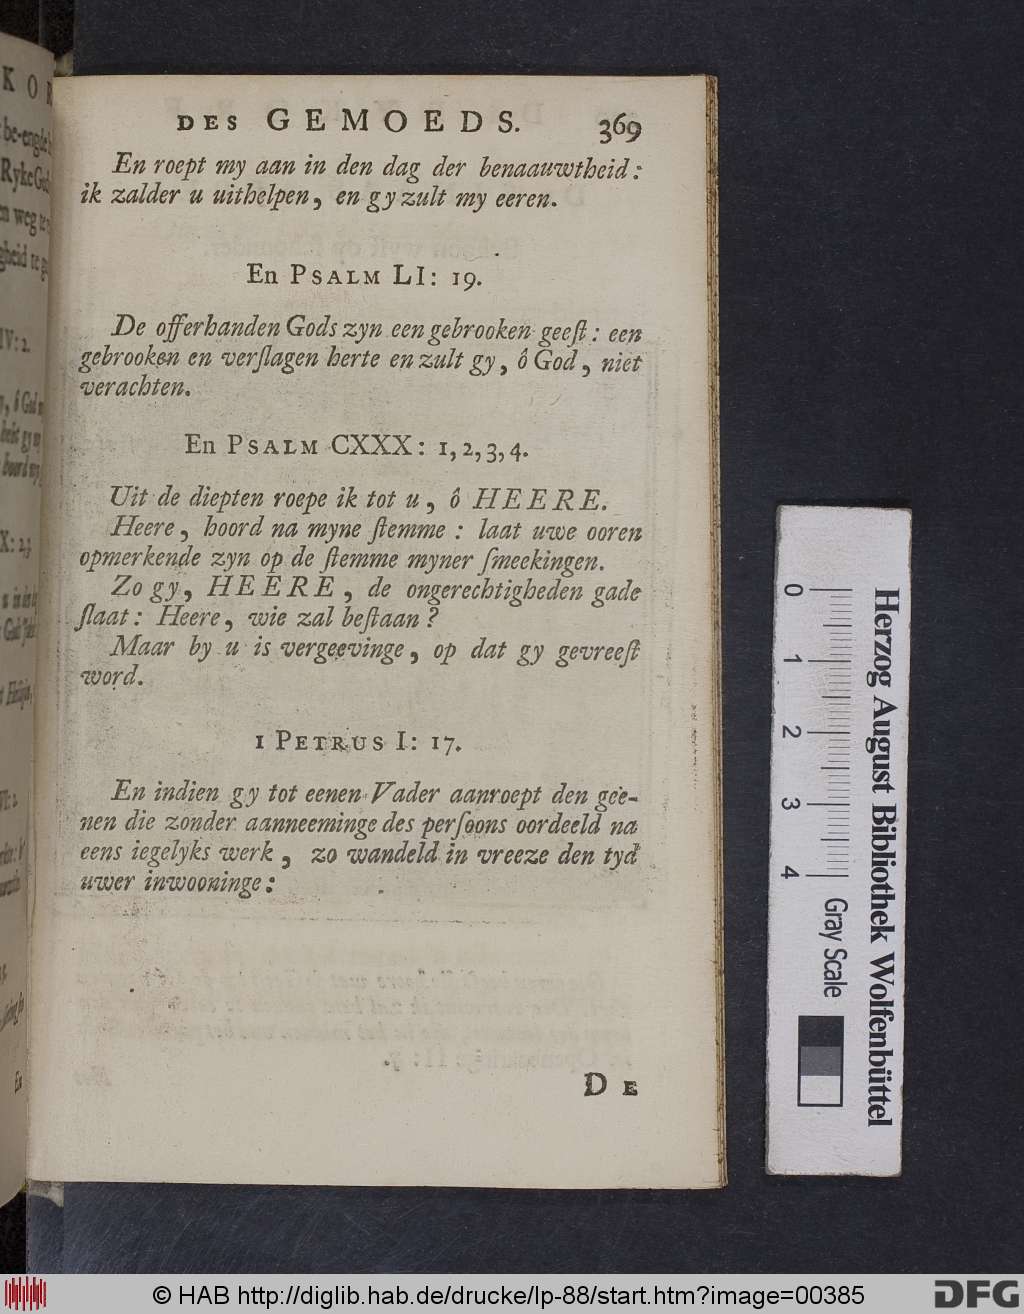 DES GEMOEDS. 369
En roept my aan in den dag der benaauwtheid:
ik zalder u uithelpen, en gy zult my eeren.
En PSALM LI: 19.
De offerhanden Gods zyn een gebrooken geeſt: een
gebrooken en verſlagen herte en zult gy, ô God, niet
verachten.
En PSALM CXXX: 1, 2, 3, 4.
Uit de diepten roepe ik tot u, ô HEERE.
Heere, hoord na myne ſtemme: laat uwe ooren
opmerkende zyn op de ſtemme myner ſmeekingen.
Zo gy, HEERE, de ongerechtigheden gade
ſlaat: Heere, wie zal beſtaan?
Maar by u is vergeevinge, op dat gy gevreeſt
word.
1 PETRUS I: 17.
En indien gy tot eenen Vader aanroept den gee-
nen die zonder aanneeminge des perſoons oordeeld na
eens iegelyks werk, zo wandeld in vreeze den tyd
uwer inwooninge:
DE
KOR
be-engde
Ryke
weg
IV: 2.
X: 2,3
En
0 1 2 3 4
Gray Scale
Herzog August Bibliothek Wolfenbüttel
© HAB http://diglib.hab.de/drucke/lp-88/start.htm?image=00385
DFG